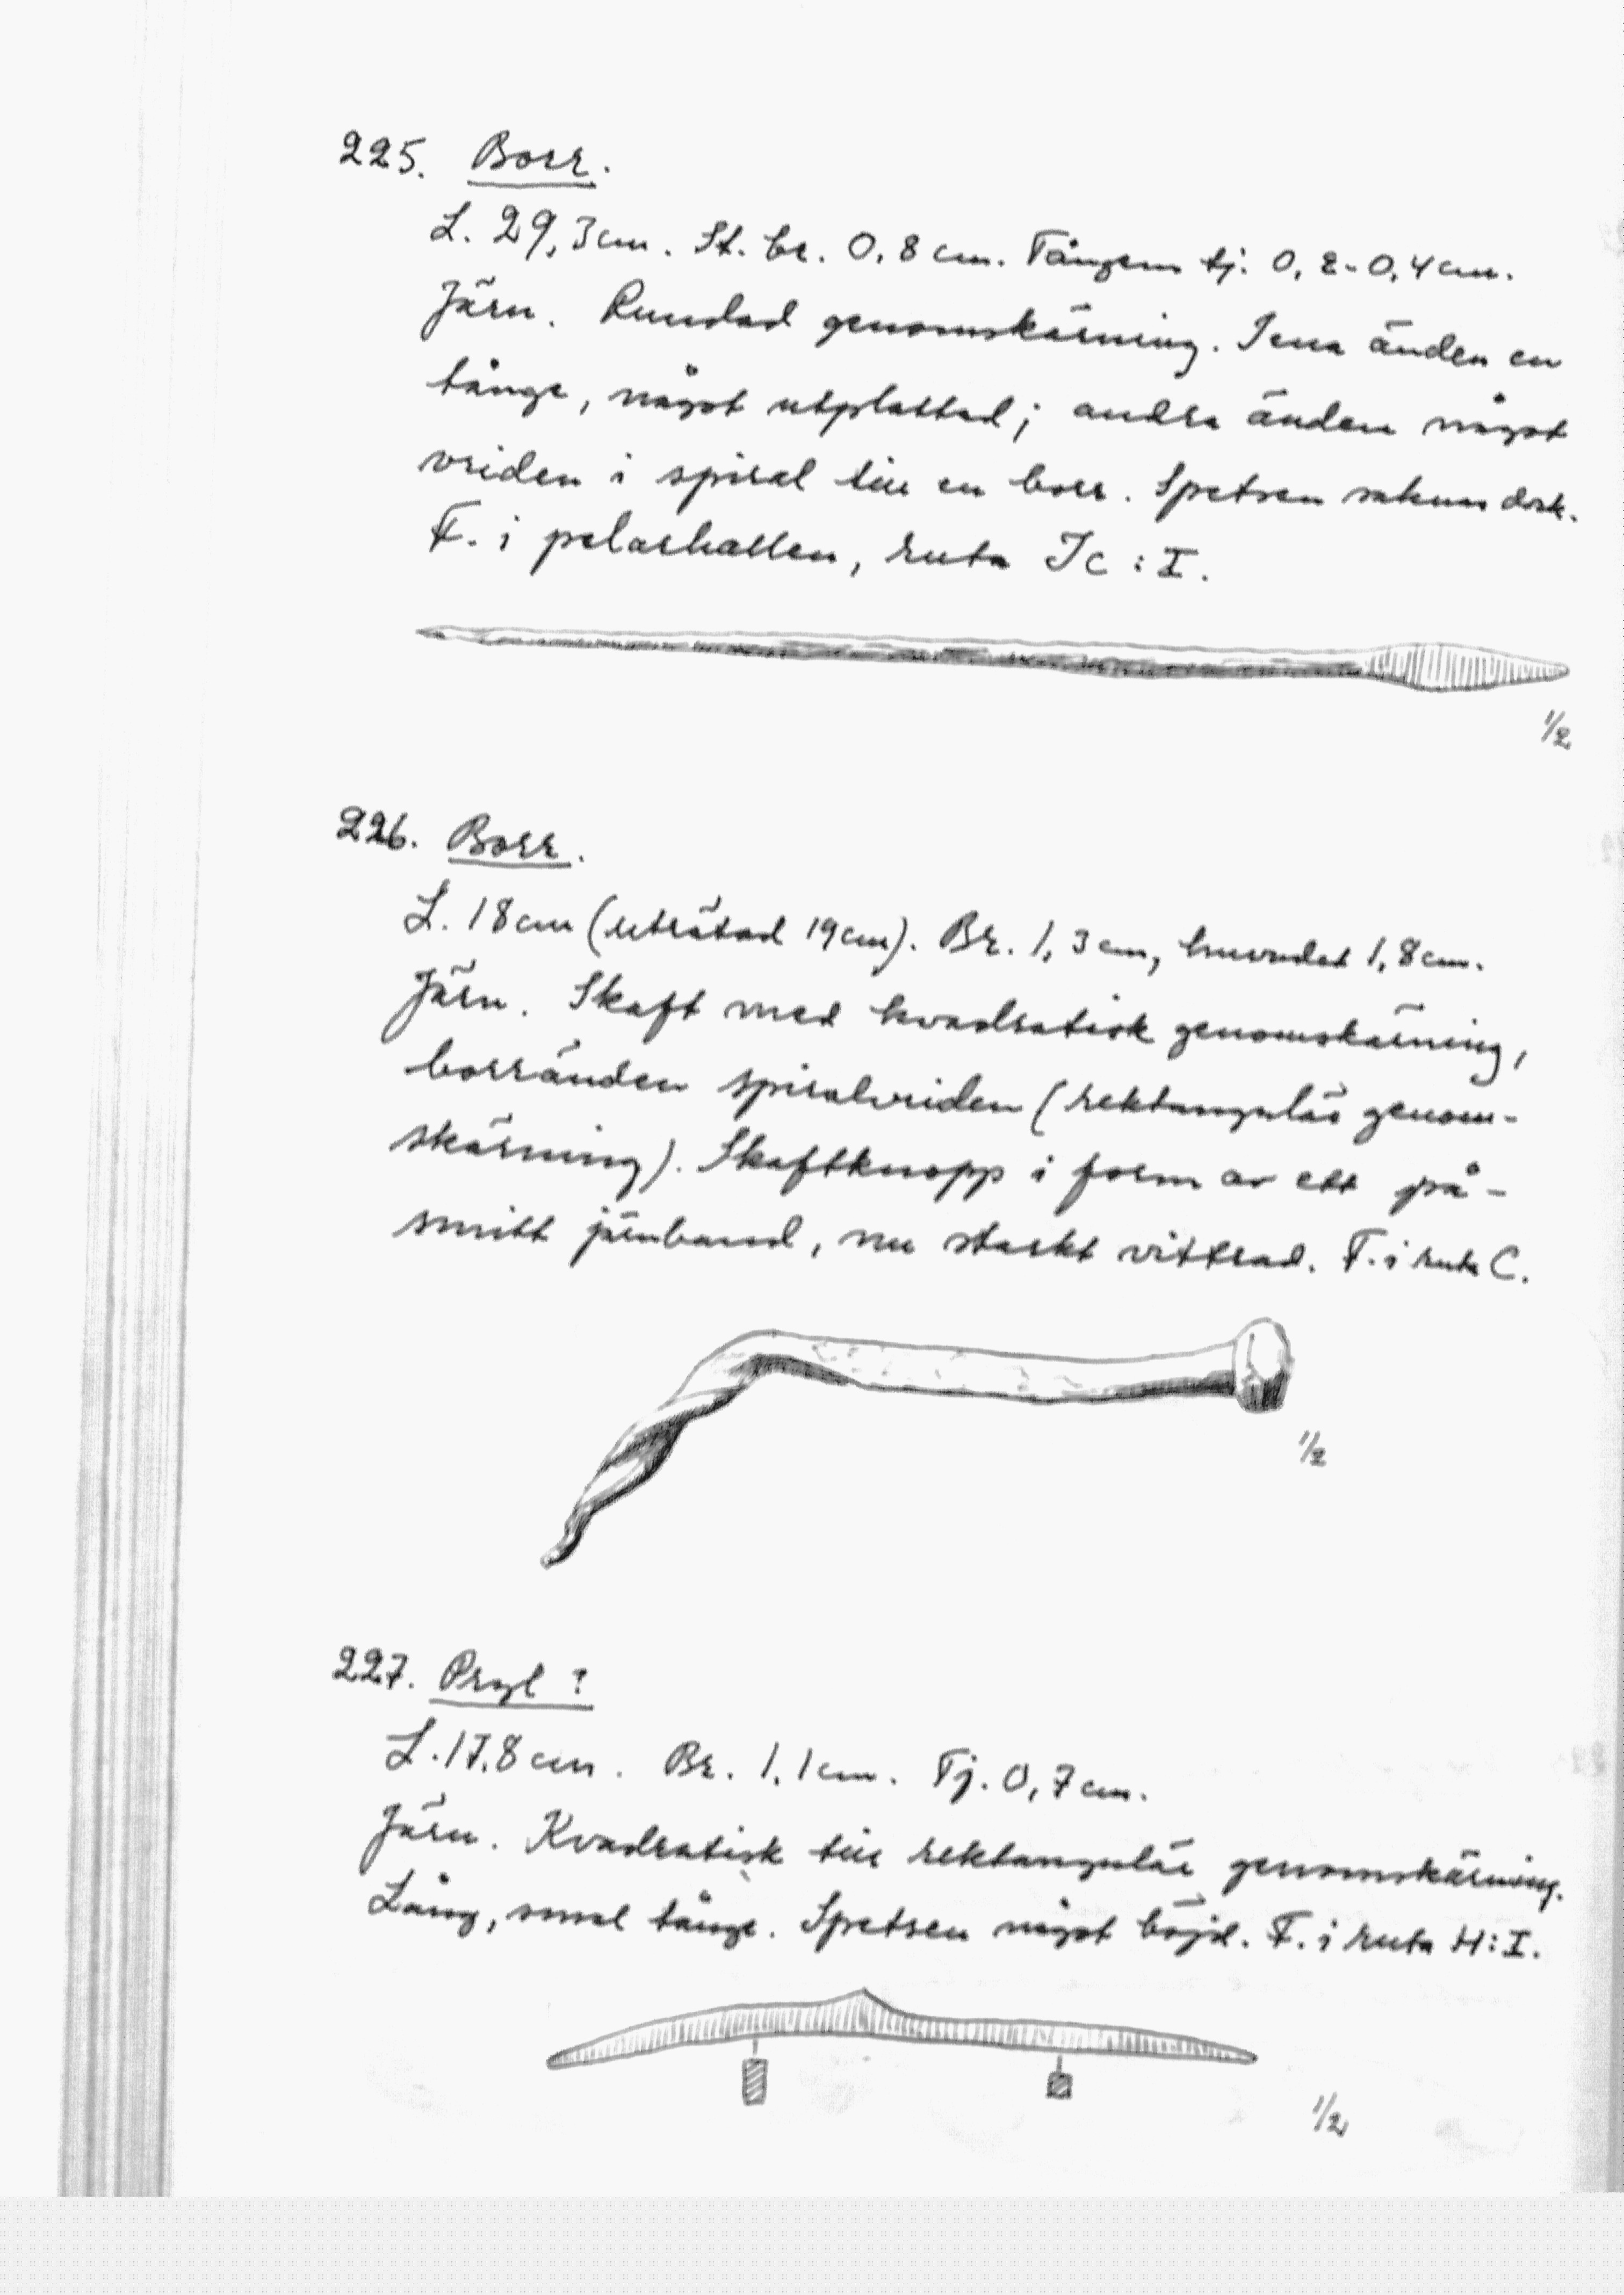 225. Borr.
L. 29,3 cm. St. br. 0,8 cm. Tångens tj. 0,2-0,4 cm.
Järn. Rundad genomskärning. I ena änden en
tånge, något utplattad; andra änden något
vriden i spiral till en borr. Spetsen saknas dock.
F. i pelarhallen, ruta Jc : I.
1/2
226. Borr.
L. 18 cm (uträtad 19 cm). Br. 1,3 cm, huvudet 1,8 cm.
Järn. Skaft med kvadratisk genomskärning,
borränden spiralvriden (rektangulär genom-
skärning). Skaftknopp i form av ett på-
smitt järnband, nu starkt vittrad. F. i ruta C.
1/2
227. Pryl ?
L. 17,8 cm. Br. 1,1 cm. Tj. 0,7 cm.
Järn. Kvadratisk till rektangulär genomskärning.
Lång, smal tånge. Spetsen något böjd. F. i ruta H : I.
1/2